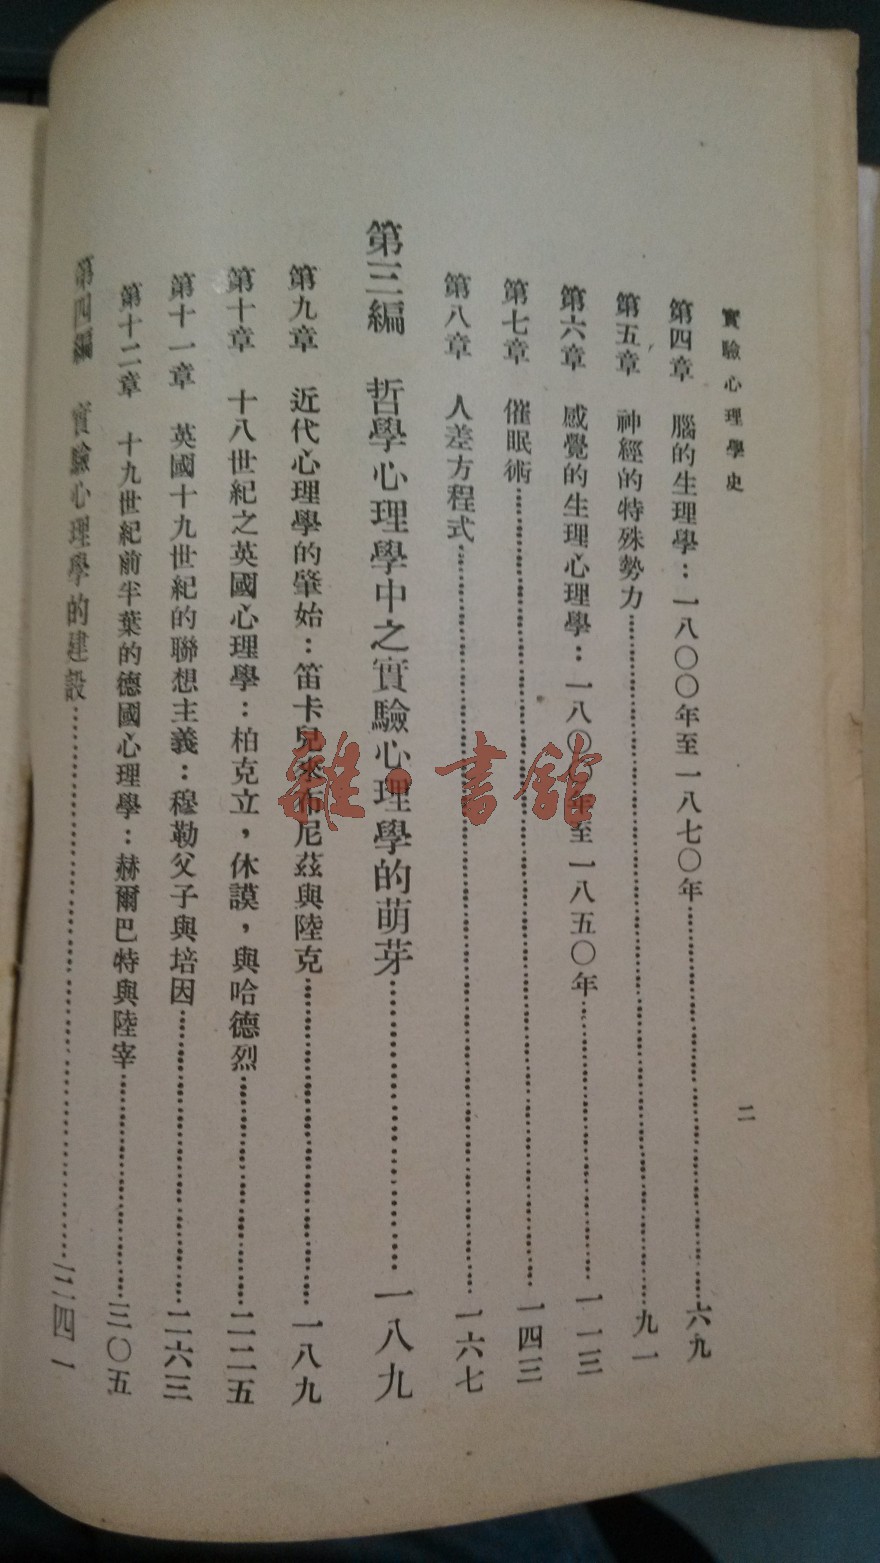 實驗心理學史
二
第四章 腦的生理學：一八〇〇年至一八七〇年……六九
第五章 神經的特殊勢力……九一
第六章 感覺的生理心理學：一八〇〇年至一八五〇年……一一三
第七章 催眠術……一四三
第八章 人差方程式……一六七
第三編 哲學心理學中之實驗心理學的萌芽……一八九
第九章 近代心理學的肇始：笛卡兒來布尼茲與陸克……一八九
第十章 十八世紀之英國心理學：柏克立，休謨，與哈德烈……二二五
第十一章 英國十九世紀的聯想主義：穆勒父子與培因……二六三
第十二章 十九世紀前半葉的德國心理學：赫爾巴特與陸宰……三〇五
第四編 實驗心理學的建設……三四一
雜·書館